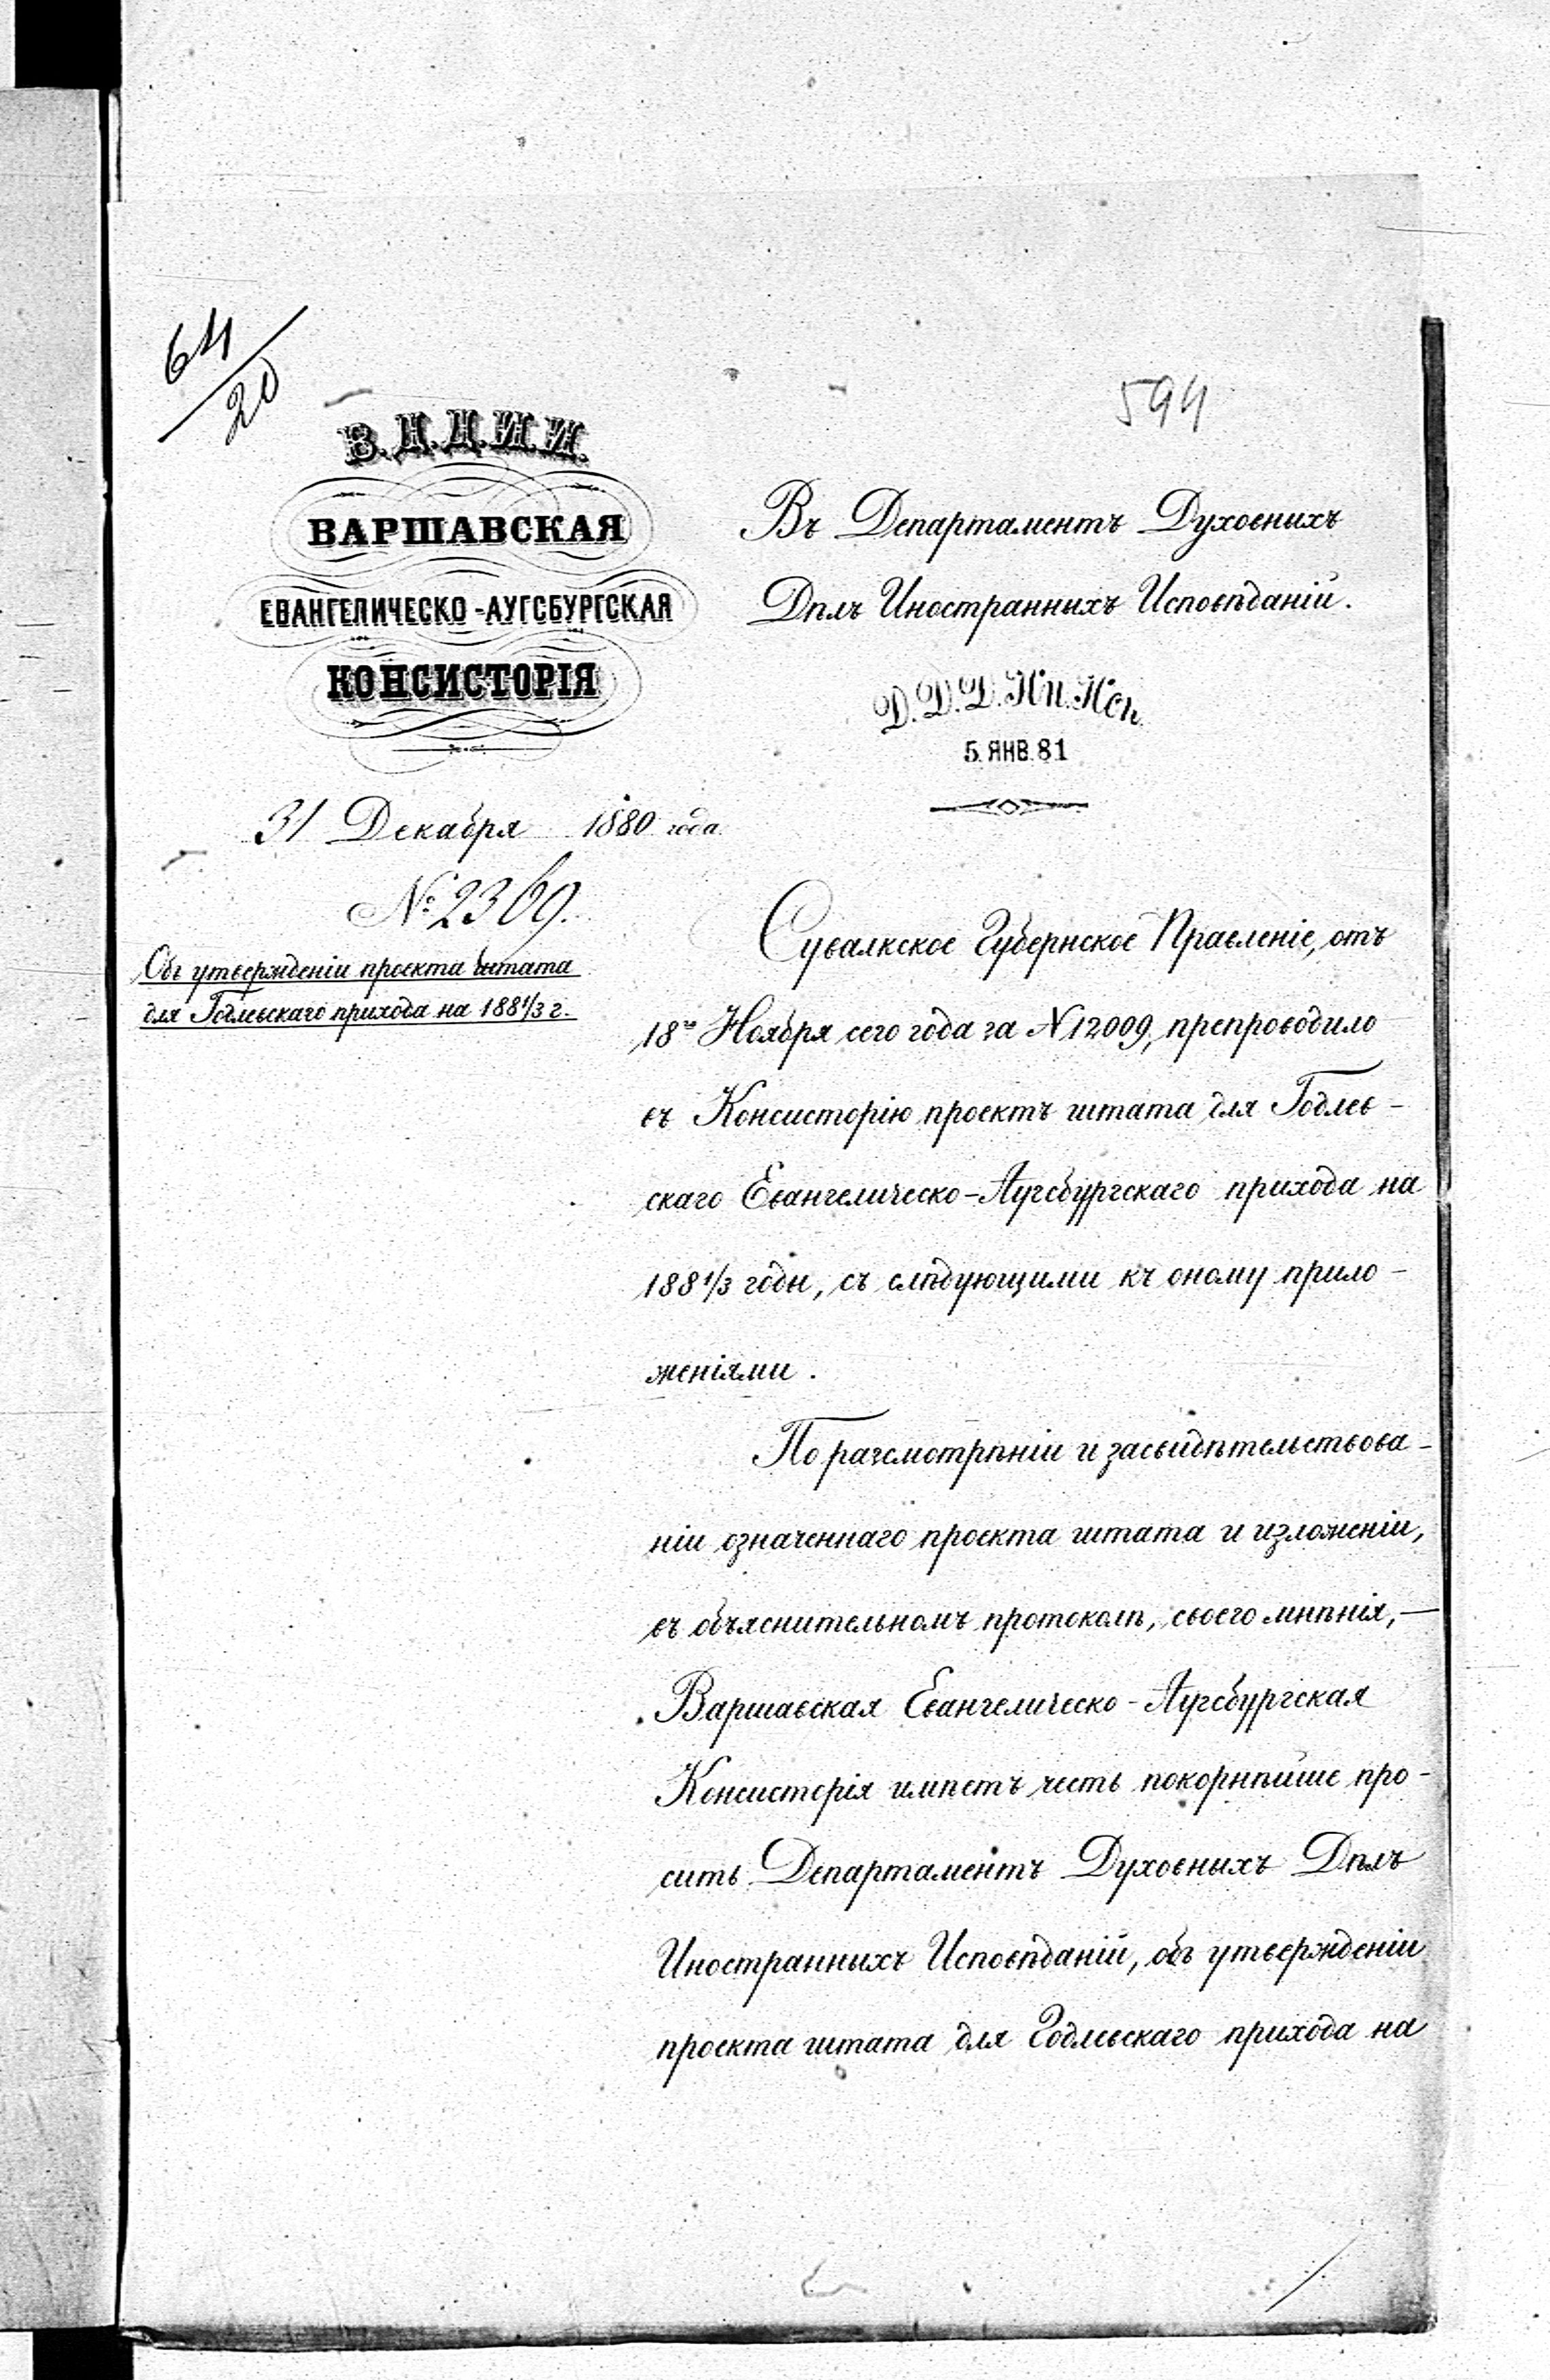 64/20
594
В.Д.Д.И.И.
ВАРШАВСКАЯ
ЕВАНГЕЛИЧЕСКО-АУГСБУРГСКАЯ
КОНСИСТОРІЯ
31 Декабря 1880 года
№ 2369.
Объ утвержденіи проекта штата
для Годлевскаго прихода на 1881/3 г.
Въ Департаментъ Духовныхъ
Дѣлъ Иностранныхъ Исповѣданій.
Д.Д.Д.Ин.Исп.
5. ЯНВ. 81
Сувалкское Губернское Правленіе, отъ
18го Ноября сего года за N 12009, препроводило
въ Консисторію проектъ штата для Годлев-
скаго Евангелическо-Аугсбургскаго прихода на
1881/3 годы, съ слѣдующими къ оному прило-
женіями.
По разсмотрѣніи и засвидѣтельствова-
ніи означеннаго проекта штата и изложеніи,
въ объяснительномъ протоколѣ, своего мнѣнія,—
Варшавская Евангелическо-Аугсбургская
Консисторія имѣетъ честь покорнѣйше про-
сить Департаментъ Духовныхъ Дѣлъ
Иностранныхъ Исповѣданій, объ утвержденіи
проекта штата для Годлевскаго прихода на